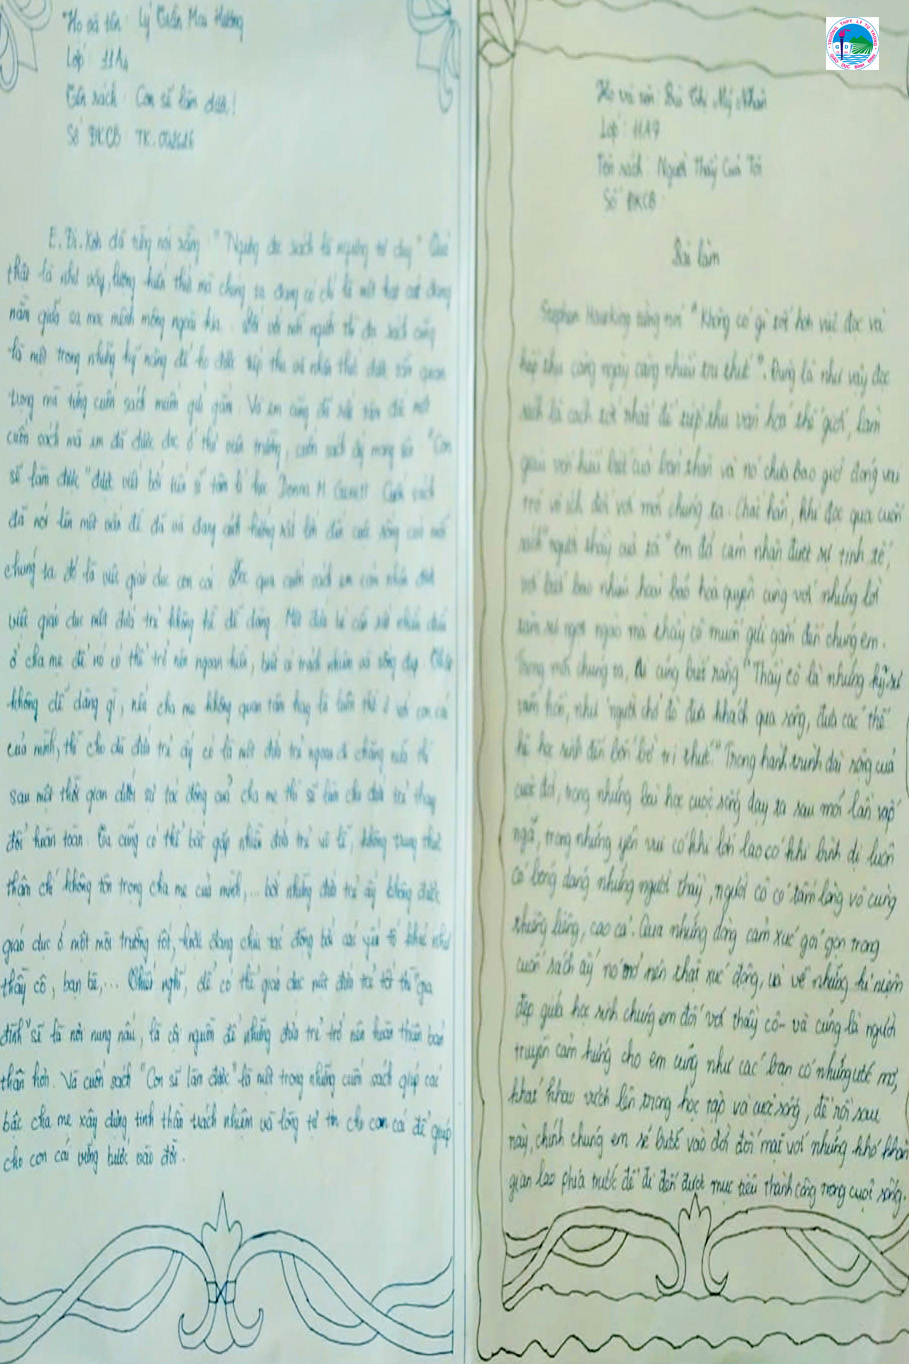 Họ và tên: Lý Trần Mai Hương
Lớp: 11A4
Tên sách: Con sẽ làm được!
Số ĐKCB: TK.
E. Đi. Xơn đã từng nói rằng: "Ngừng đọc sách là ngừng tư duy" Quả
thật là như vậy, lượng kiến thức mà chúng ta đang có chỉ là một hạt cát đang
nằm giữa sa mạc mênh mông ngoài kia. Đối với mỗi người thì đọc sách cũng
là một trong những kỹ năng để ta được tiếp thu và nhận thức được tầm quan
trọng mà từng cuốn sách muốn gửi gắm. Và em cũng đã một
cuốn sách mà em đã được đọc ở thư viện trường, cuốn sách ấy mang tên "Con
sẽ làm được" được viết bởi tiến sĩ tâm lí học Donna M. Cuốn sách
đã nói lên một vấn đề đã và đang ảnh hưởng rất lớn đến cuộc sống của mỗi
chúng ta đó là việc giáo dục con cái. Đọc qua cuốn sách em cảm nhận được
việc giáo dục một đứa trẻ không hề dễ dàng. Một đứa bé cần rất nhiều điều
ở cha mẹ để nó có thể trở nên ngoan hiền, biết có trách nhiệm và sống đẹp.
không dễ dàng gì, nếu cha mẹ không quan tâm hay là luôn thờ ơ với con cái
của mình, thì cho dù đứa trẻ ấy có là một đứa trẻ ngoan đi chăng nữa thì
sau một thời gian dưới sự tác động của cha mẹ thì sẽ làm cho đứa trẻ thay
đổi hoàn toàn. Ta cũng có thể bắt gặp nhiều đứa trẻ vô lễ, không trung thực
thậm chí không tôn trọng cha mẹ của mình,... bởi những đứa trẻ ấy không được
giáo dục ở một môi trường tốt, đang chịu tác động bởi các yếu tố khác như
thầy cô, bạn bè,... nghĩ, để có thể giáo dục một đứa trẻ tốt thì "gia
đình" sẽ là nơi nung nấu, là cội nguồn để những đứa trẻ trở nên hoàn thiện bản
thân hơn. Và cuốn sách "Con sẽ làm được" là một trong những cuốn sách giúp các
bậc cha mẹ xây dựng tinh thần trách nhiệm và lòng tự tin cho con cái để giúp
cho con cái vững bước vào đời.
Họ và tên: Bùi Thị Mỹ Nhàn
Lớp: 11A7
Tên sách: Người Thầy Của Tôi
Số ĐKCB:
Bài làm
Stephen Hawking từng nói "Không có gì tốt hơn việc đọc và
hấp thu càng ngày càng nhiều tri thức". Đúng là như vậy đọc
sách là cách tốt nhất để tiếp thu văn hoá thế giới, làm
giàu vốn hiểu biết của bản thân và nó chưa bao giờ đóng vai
trò vô ích đối với mỗi chúng ta. Chắc hẳn, khi đọc qua cuốn
sách "người thầy của tôi" em đã cảm nhận được sự tinh tế,
với biết bao nhiêu hoài bão hoà quyện cùng với những lời
tâm sự ngọt ngào mà thầy cô muốn gửi gắm đến chúng em.
Trong mỗi chúng ta, ai cũng biết rằng "Thầy cô là những kỹ sư
tâm hồn, như người chở đò đưa khách qua sông, đưa các thế
hệ học sinh đến bến bờ tri thức." Trong hành trình dài rộng của
cuộc đời, trong những bài học cuộc sống dạy ta sau mỗi lần vấp
ngã, trong những yên vui có khi lớn lao có khi bình dị luôn
có bóng dáng những người thầy, người cô có tấm lòng vô cùng
thiêng liêng, cao cả. Qua những dòng cảm xúc gói gọn trong
cuốn sách ấy nó trở nên thật xúc động, và về những kỉ niệm
đẹp giữa học sinh chúng em đối với thầy cô- và cũng là người
truyền cảm hứng cho em cũng như các bạn có những ước mơ,
khát khao vươn lên trong học tập và cuộc sống, để rồi sau
này, chính chúng em sẽ bước vào đời đối mặt với những khó khăn
gian lao phía trước để đi đến được mục tiêu thành công trong cuộc sống.